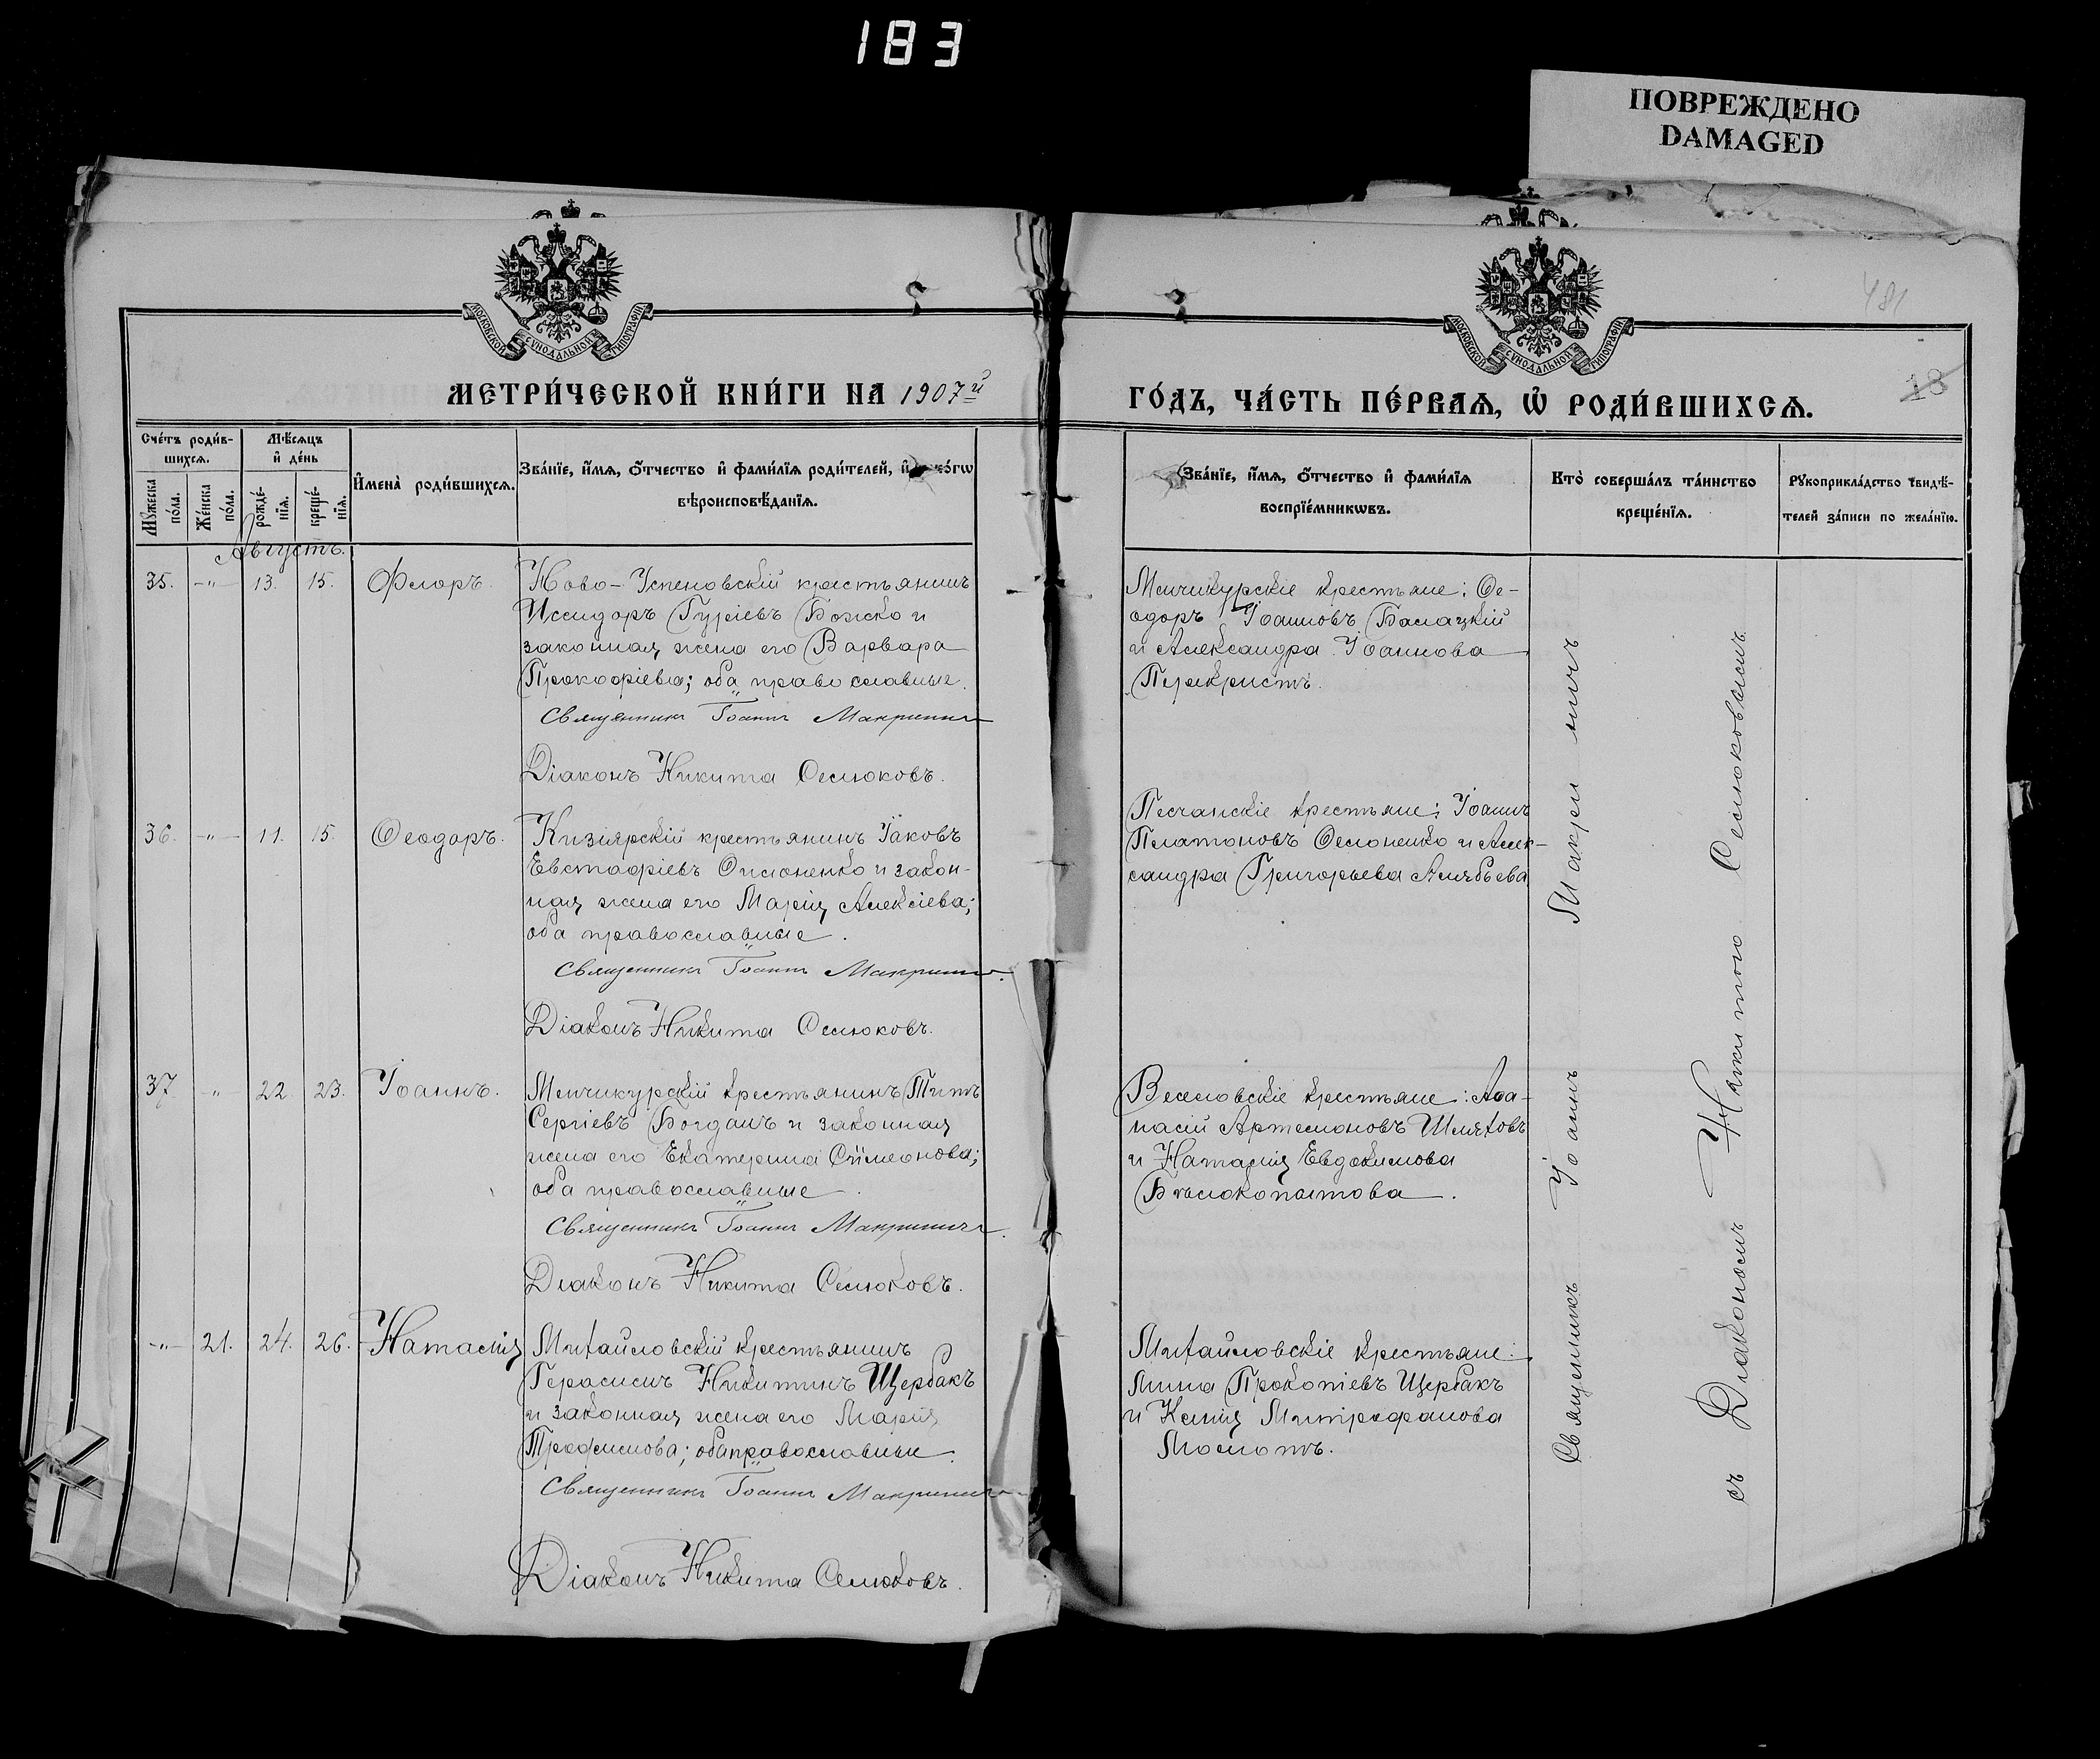 183
ПОВРЕЖДЕНО
DAMAGED
МОСКОВСКОЙ СѴНОДАЛЬНОЙ ТИПОГРАФІИ
МОСКОВСКОЙ СѴНОДАЛЬНОЙ ТИПОГРАФІИ
481
18
МЕТРИ́ЧЕСКОЙ КНИ́ГИ НА 1907й
ГО́ДЪ, ЧА́СТЬ ПЕ́РВАѦ, Ѡ҆ РОДИ́ВШИХСѦ.
Сче́тъ роди́в-
шихсѧ.
Мѣ́сѧцъ
и҆ де́нь
Мꙋ́жеска
по́ла.
Же́нска
по́ла.
рожде́-
нїѧ.
креще́-
нїѧ.
И҆мена̀ роди́вшихсѧ.
Зва́нїе, и҆́мѧ, ѻ҆́тчество и҆ фами́лїѧ роди́телей, и҆
вѣроисповѣ́данїѧ.
Зва́нїе, и҆́мѧ, ѻ҆́тчество и҆ фами́лїѧ
воспрїе́мникѡвъ.
Кто̀ соверша́лъ та́инство
креще́нїѧ.
Рꙋкоприкла́дство свидѣ́-
телей за́писи по жела́нїю.
Августъ.
35. -"- 13. 15. Флоръ. Ново-Успеновскій крестьянинъ
Иссидоръ Гуріевъ Божко и
законная жена его Варвара
Прокофіева; оба православные.
Священникъ Іоаннъ Макринич
Діаконъ Никита Селюковъ.
Менчикурскіе крестьяне: Ѳе-
одоръ Іоанновъ Балацкій
и Александра Іоаннова
Перекристъ.
36. -"- 11. 15. Ѳеодоръ. Кизіярскій крестьянинъ Іаковъ
Евстафіевъ Омеоненко и закон-
ная жена его Марія Алексіева;
оба православные.
Священникъ Іоаннъ Макринич.
Діаконъ Никита Селюковъ.
Песчанскіе крестьяне: Іоаннъ
Платоновъ Семоненко и Алек-
сандра Григорьева Алябьева
37 " 22 23. Іоаннъ. Менчикурскій крестьянинъ Титъ
Сергіевъ Богданъ и законная
жена его Екатерина Сѵмеонова;
оба православные.
Священникъ Іоаннъ Макриничъ.
Діаконъ Никита Селюковъ.
Веселовскіе крестьяне: Аѳа-
насій Артемоновъ Шляховъ
и Наталія Евдокимова
Бѣлокопытова.
-"- 21. 24. 26. Наталія Михайловскій крестьянинъ
Герасимъ Никитинъ Щербакъ
и законная жена его Марія
Трофимова; оба православные.
Священникъ Іоаннъ Макринич
Діаконъ Никита Селюковъ.
Михайловскіе крестьяне:
Мина Прокопіевъ Щербакъ
и Ксенія Митрофанова
Молотъ.
Священникъ Іоаннъ Макриничъ
съ Діакономъ Никитою Селюковымъ.